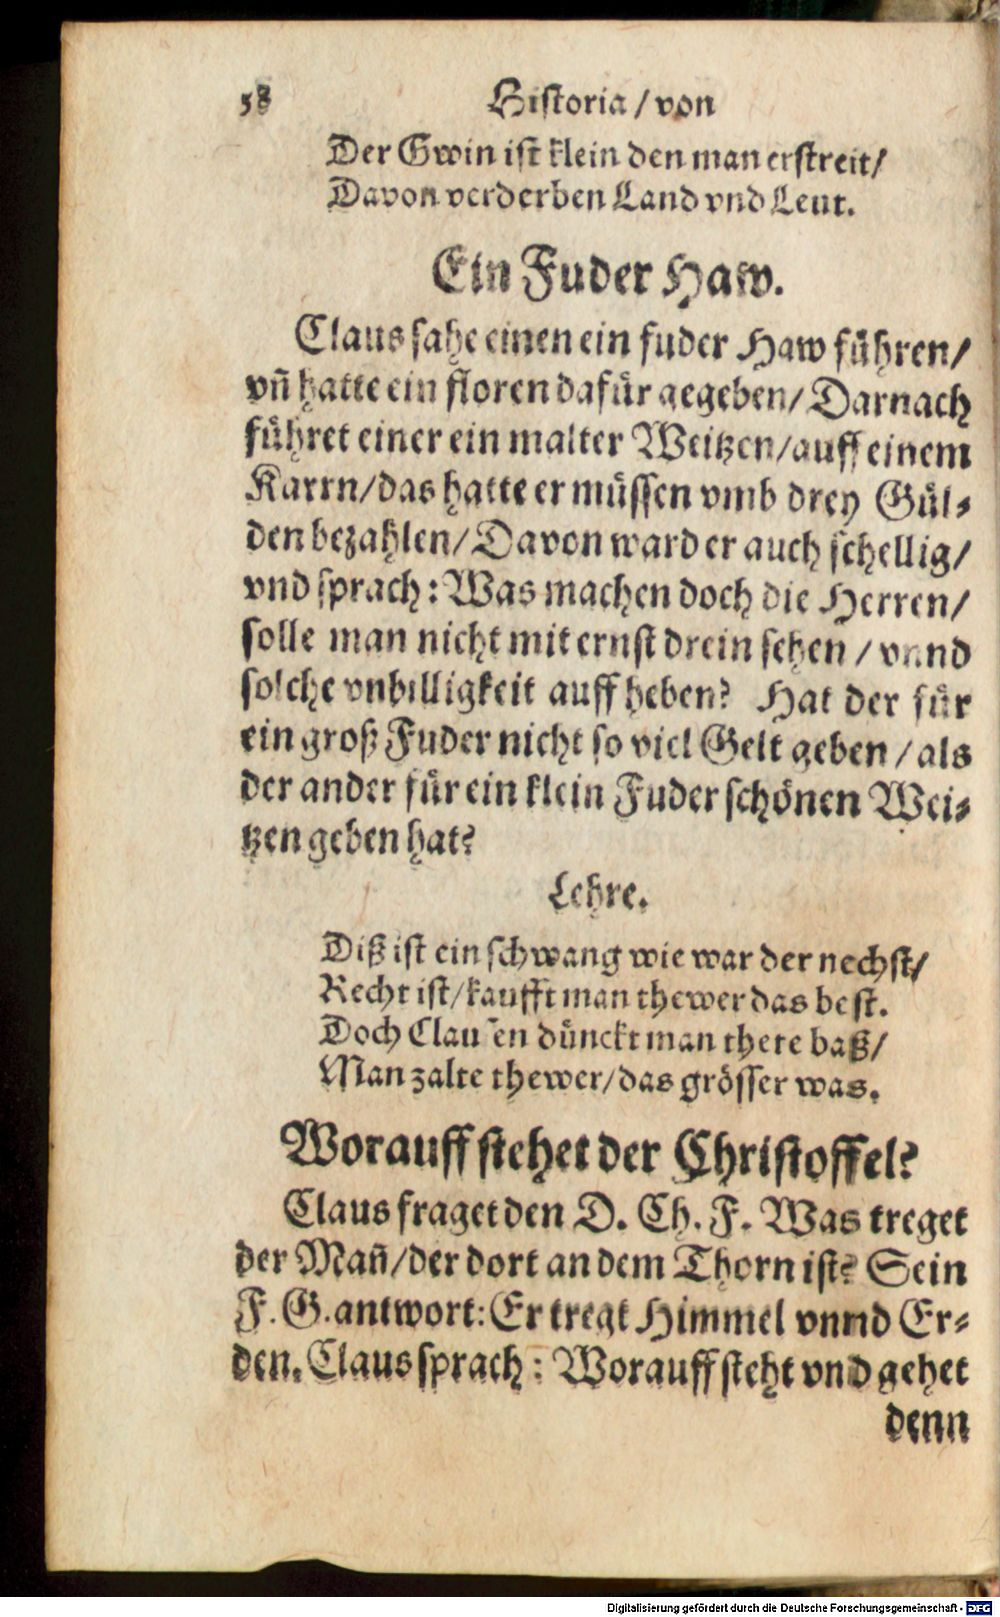 58 Historia / von
Der Gwin ist klein den man erstreit/
Davon verderben Land vnd Leut.
Ein Fuder Haw.
Claus sahe einen ein fuder Haw führen/
vñ hatte ein floren dafür gegeben/ Darnach
führet einer ein malter Weitzen/auff einem
Karrn/das hatte er müssen vmb drey Gül-
den bezahlen/ Davon ward er auch schellig/
vnd sprach: Was machen doch die Herren/
solle man nicht mit ernst drein sehen / vnnd
solche vnbilligkeit auff heben? Hat der für
ein groß Fuder nicht so viel Gelt geben / als
der ander für ein klein Fuder schönen Wei-
tzen geben hat?
Lehre.
Diß ist ein schwang wie war der nechst/
Recht ist/kaufft man thewer das best.
Doch Clausen dünckt man thete baß/
Man zalte thewer/das grösser was.
Worauff stehet der Christoffel?
Claus fraget den D. Ch. F. Was treget
der Mañ/der dort an dem Thorn ist? Sein
F. G. antwort: Er tregt Himmel vnnd Er-
den. Claus sprach: Worauff steht vnd gehet
denn
Digitalisierung gefördert durch die Deutsche Forschungsgemeinschaft - DFG